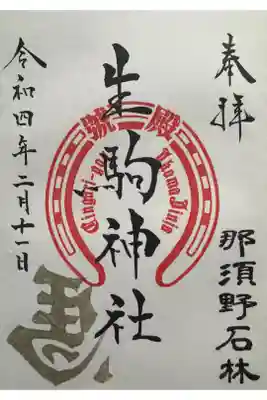 奉拝
那須野石林
生駒神社
Ikoma Jinja
令和四年二月十一日
馬